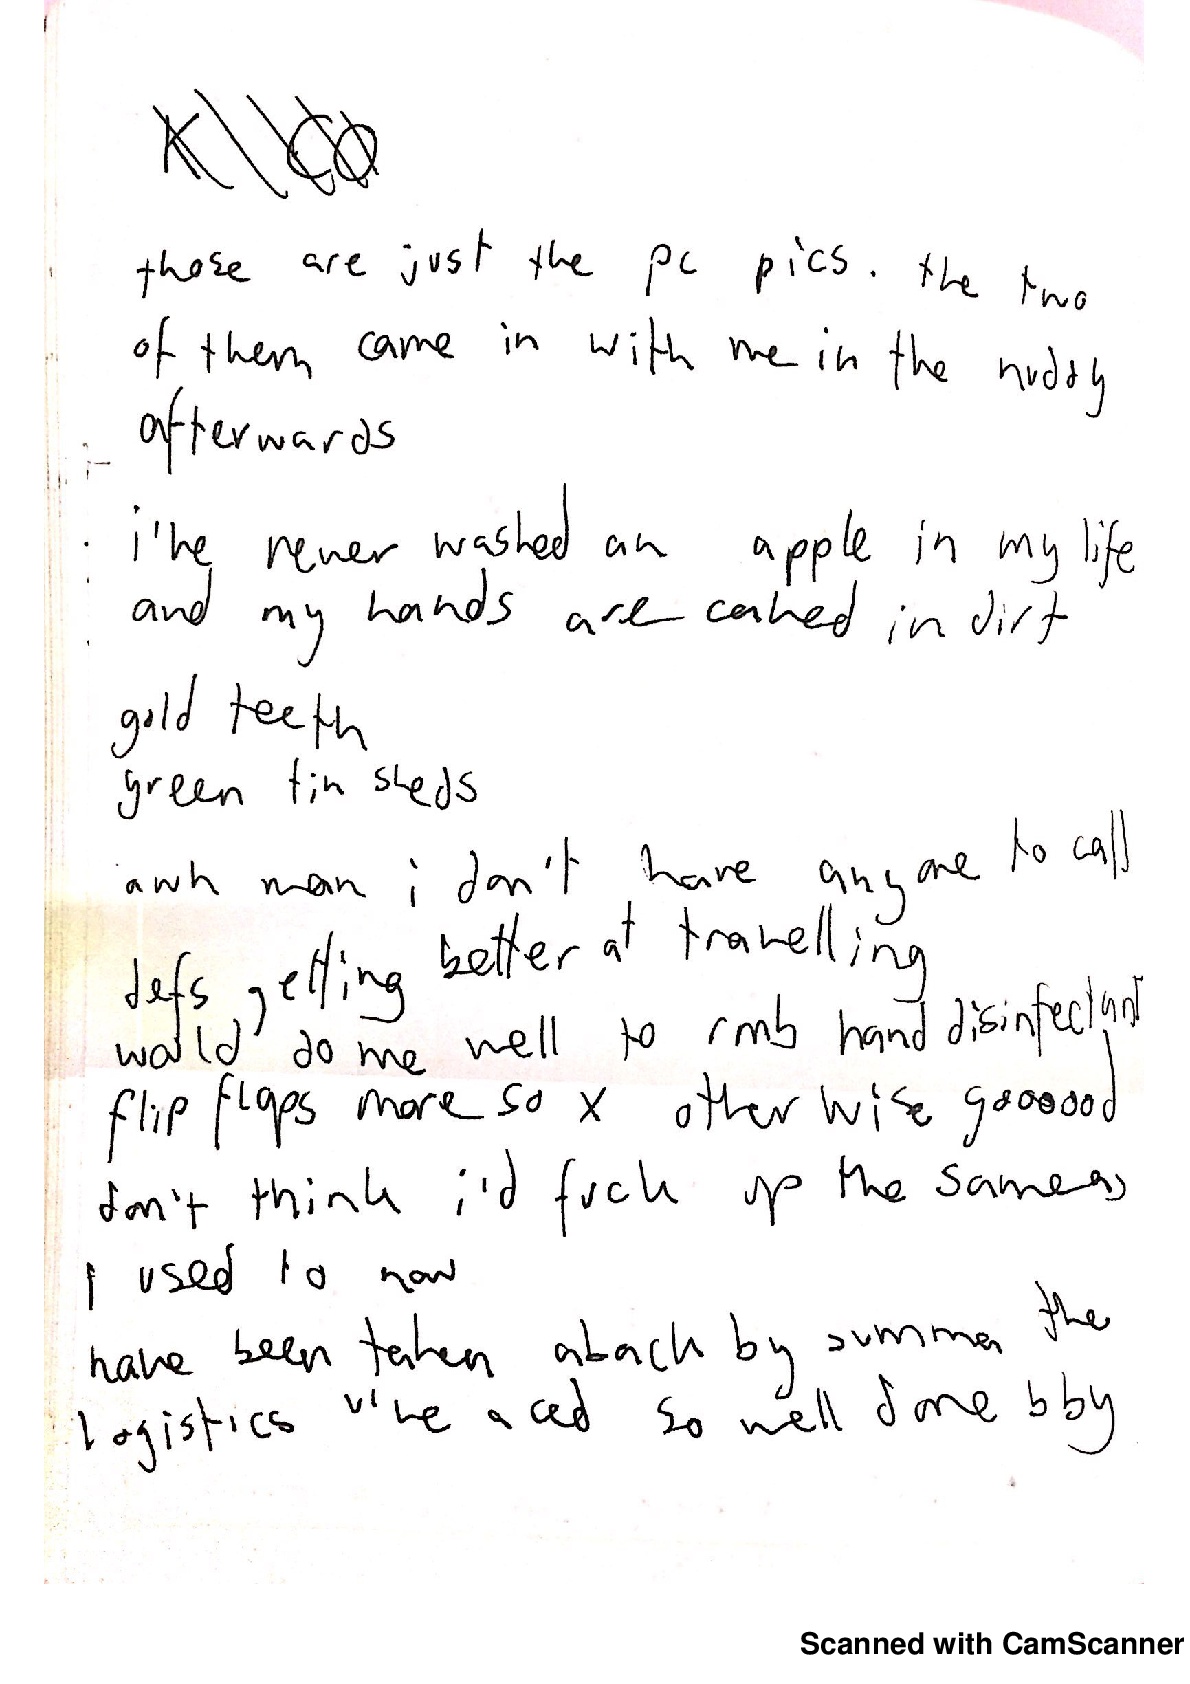 those are just the pc pics. the two
of them came in with me in the nuddy
afterwards
i've never washed an apple in my life
and my hands are caked in dirt
gold teeth
green tin sheds
awh man i don't have anyone to call
defs getting better at travelling
would do me well to rmb hand disinfectant
flip flops more so x otherwise goooood
don't think i'd fuck up the same as
I used to now
have been taken aback by summer the
logistics v've aced so well done bby
Scanned with CamScanner